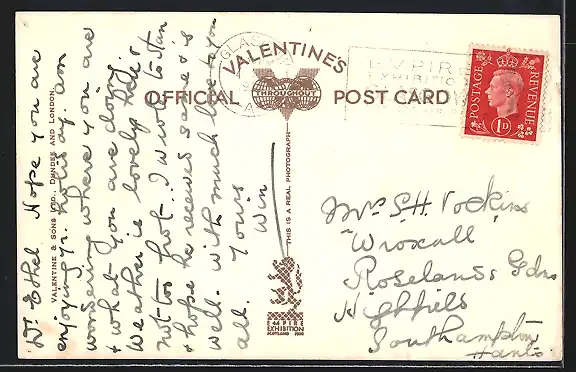 Dr Ethel Hope you are
enjoying yr. holiday. am
wondering where you are
& what you are doing
Weather is lovely here
not too hot. I wrote to Stan
& hope he received same & is
well. With much love to you
all. Yours
Win
VALENTINE & SONS LTD., DUNDEE AND LONDON.
VALENTINES
THROUGHOUT
OFFICIAL POST CARD
THIS IS A REAL PHOTOGRAPH
EMPIRE
EXHIBITION
SCOTLAND 1938
GLASG
EMPIRE
EXHIBITIO
POSTAGE REVENUE
1D
Mrs S.H. Vockins
"Wroxall"
Roselands Gdns
Highfield
Southampton
Hants